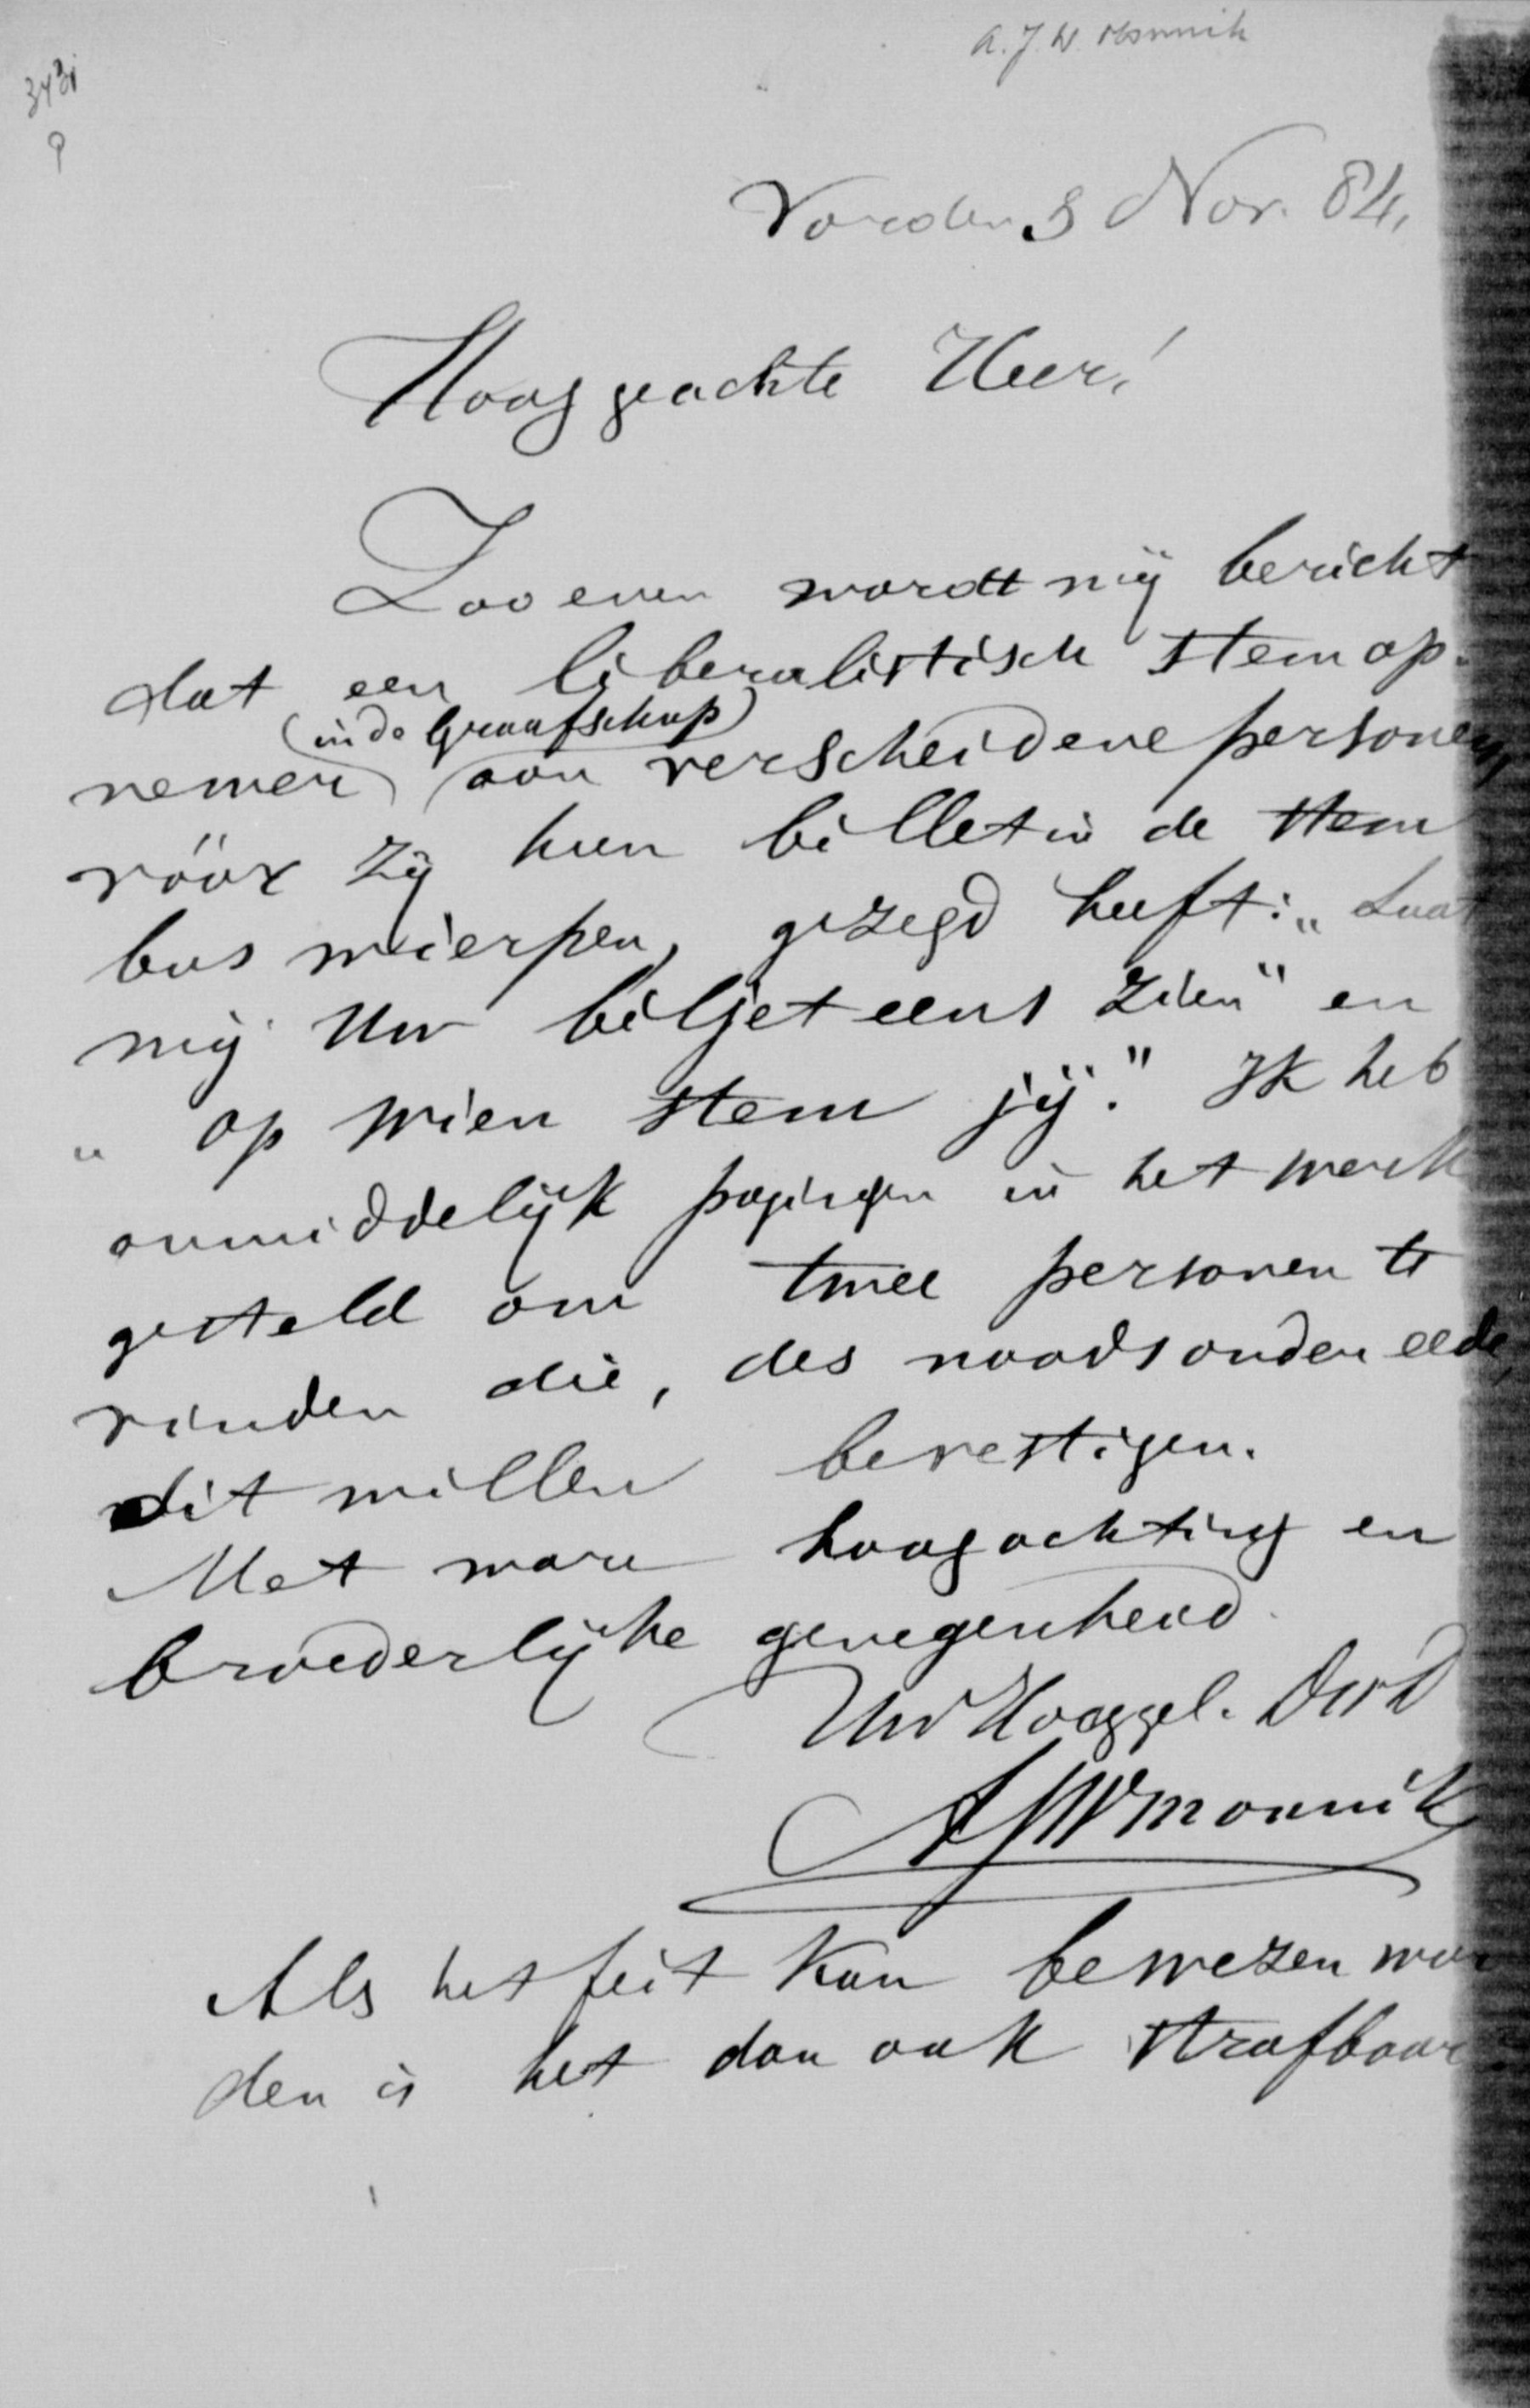 A. J. W. Monnik
3431
Vorden 3 Nov. 84,
Hooggeachte Heer!
Zooeven wordt mij bericht
dat een liberalistisch stemop-
(in de Graafschap)
nemer aan verscheidene personen,
vóór zij hun billet in de stem
bus wierpen, gezegd heeft: „Laat
mij Uw biljet eens zien" en
„op wien stem jij." Ik heb
onmiddelijk pogingen in het werk
gesteld om twee personen te
vinden die, des noods onder eede,
dit willen bevestigen.
Met ware hoogachting en
broederlijke genegenheid
Uw Hooggel. Dw D
AJWMonnik
Als het feit kan bewezen wor
den is het dan ook strafbaar